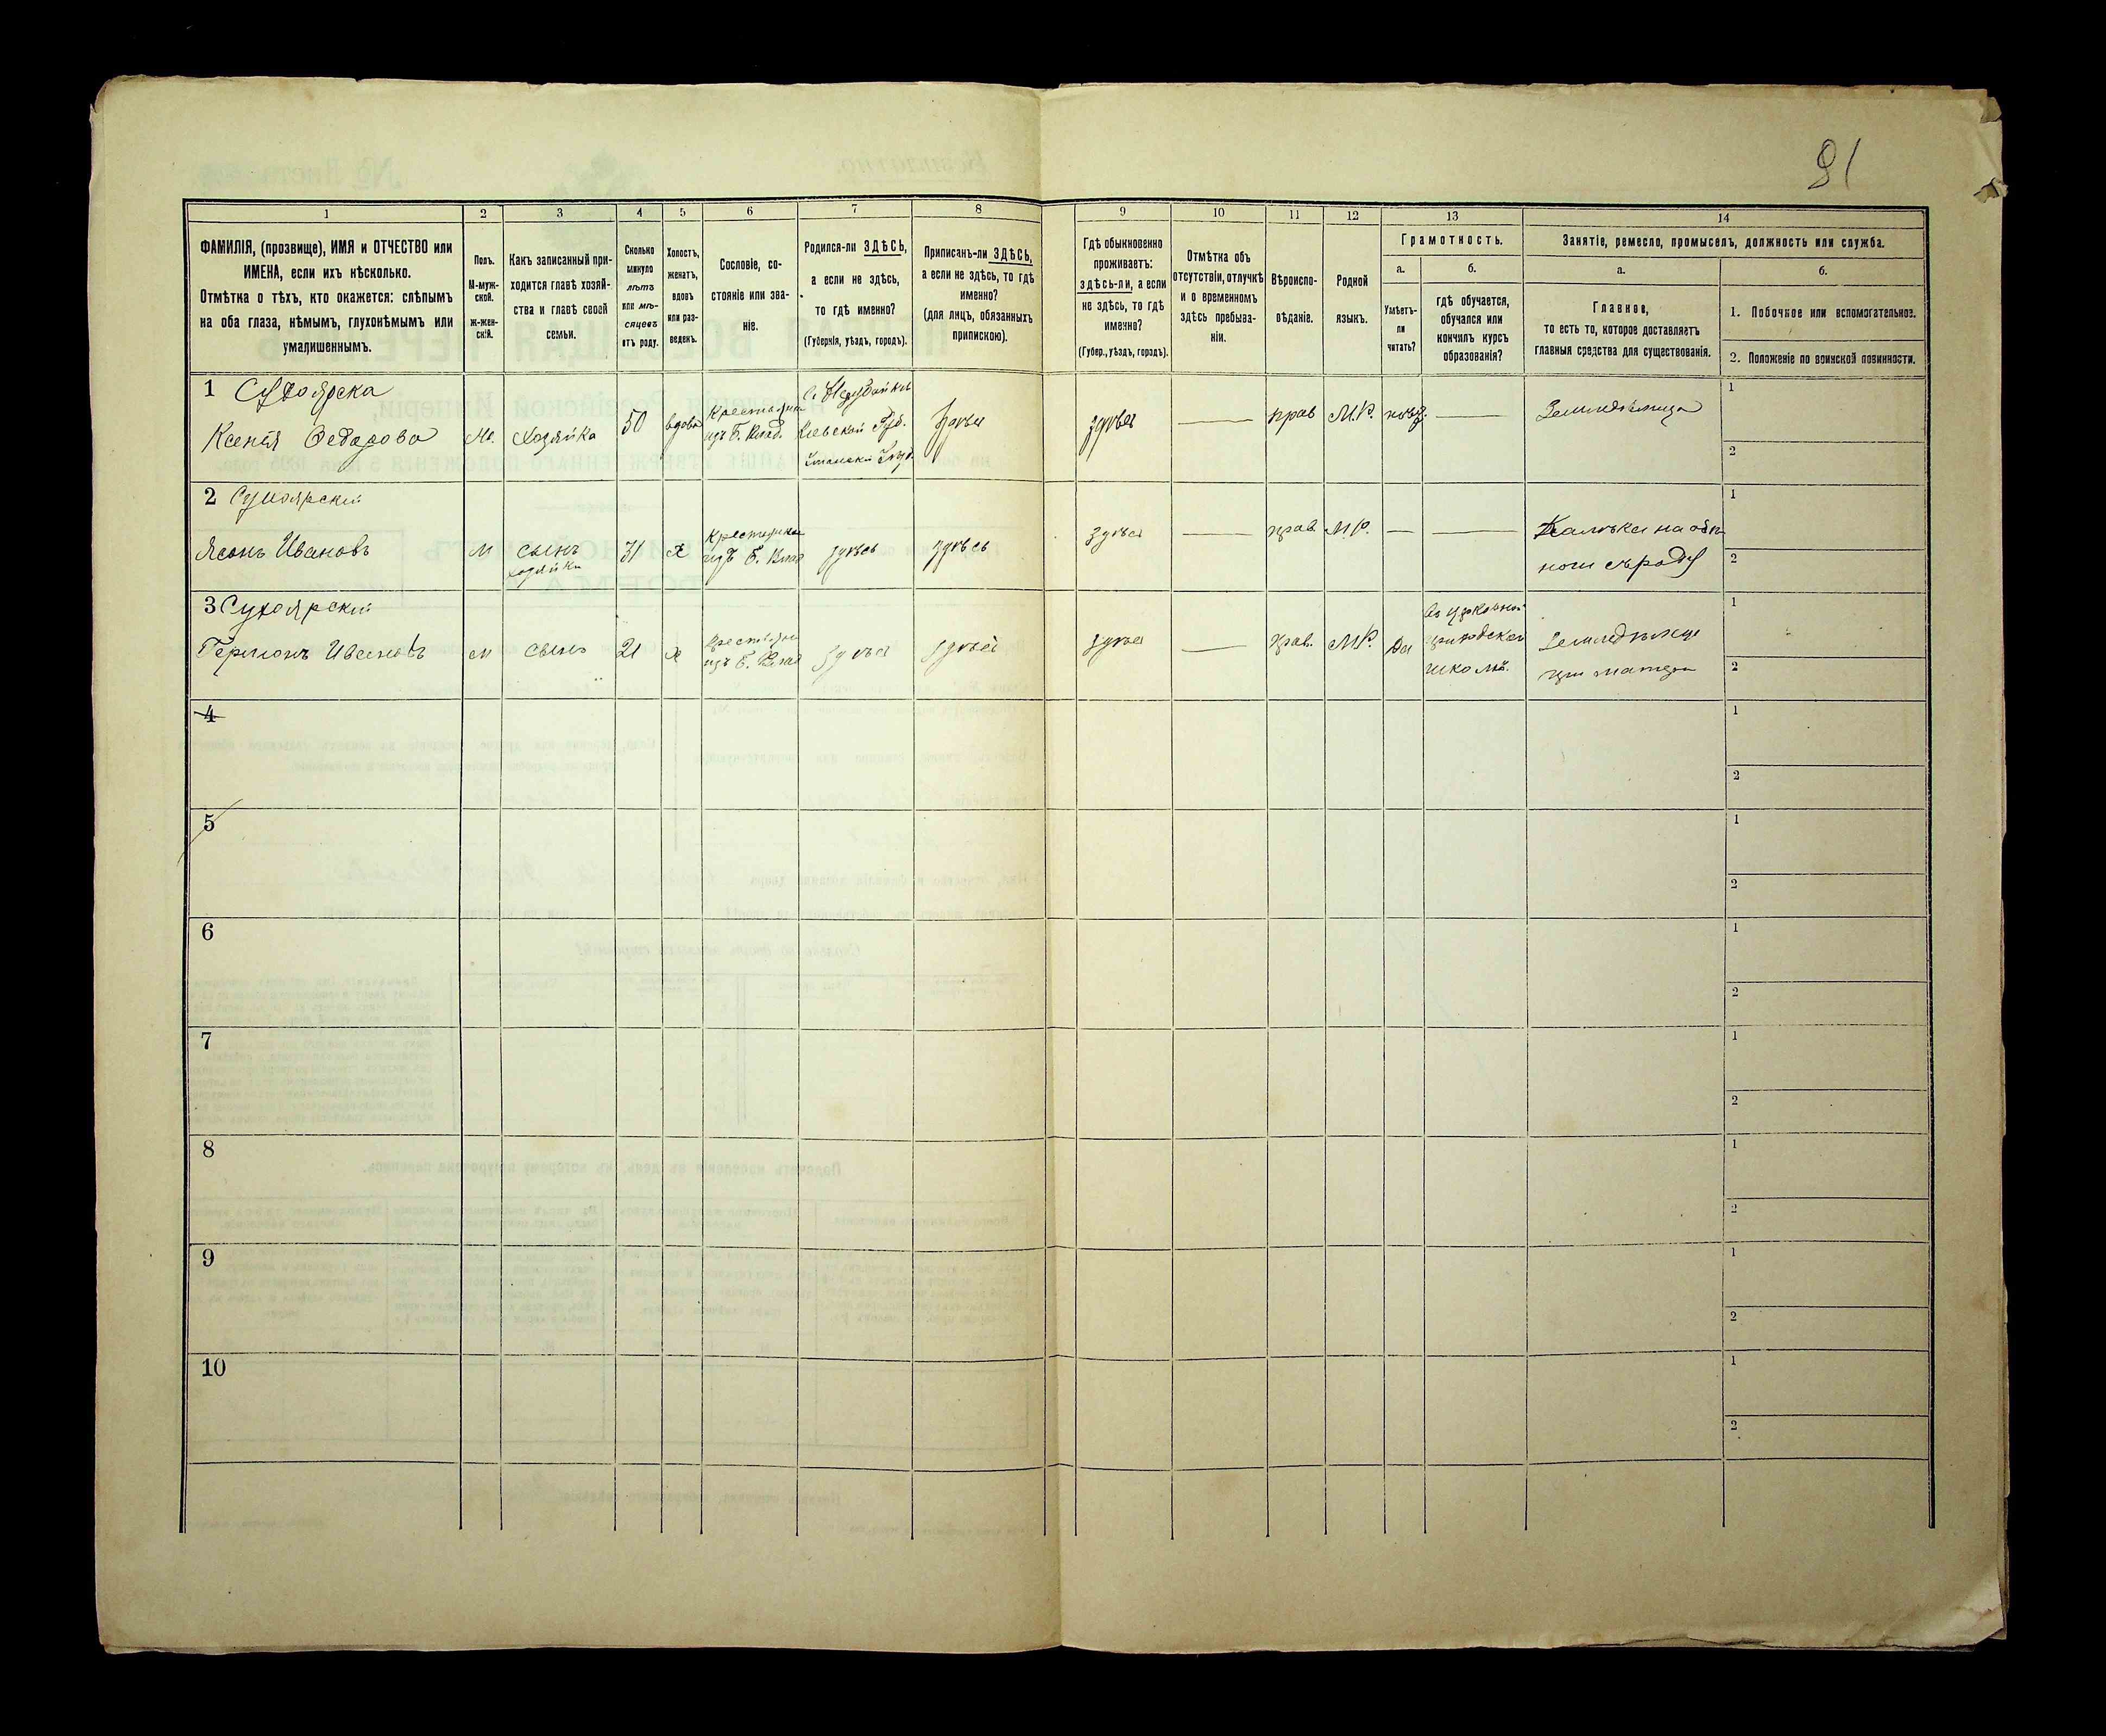 91
1 2 3 4 5 6 7 8 9 10 11 12 13 14
ФАМИЛІЯ, (прозвище), ИМЯ и ОТЧЕСТВО или
ИМЕНА, если ихъ нѣсколько.
Отмѣтка о тѣхъ, кто окажется: слѣпымъ
на оба глаза, нѣмымъ, глухонѣмымъ или
умалишеннымъ.
Полъ.
М-муж-
ской.
Ж-жен-
скій.
Какъ записанный при-
ходится главѣ хозяй-
ства и главѣ своей
семьи.
Сколько
минуло
лѣтъ
или мѣ-
сяцевъ
отъ роду.
Холостъ,
женатъ,
вдовъ
или раз-
веденъ.
Сословіе, со-
стояніе или зва-
ніе.
Родился-ли ЗДѢСЬ,
а если не здѣсь,
то гдѣ именно?
(Губернія, уѣздъ, городъ).
Приписанъ-ли ЗДѢСЬ,
а если не здѣсь, то гдѣ
именно?
(для лицъ, обязанныхъ
припискою).
Гдѣ обыкновенно
проживаетъ:
здѣсь-ли, а если
не здѣсь, то гдѣ
именно?
(Губер., уѣздъ, городъ).
Отмѣтка объ
отсутствіи, отлучкѣ
и о временномъ
здѣсь пребыва-
ніи.
Вѣроиспо-
вѣданіе.
Родной
языкъ.
Грамотность.
а.
Умѣетъ-
ли
читать?
б.
гдѣ обучается,
обучался или
кончилъ курсъ
образованія?
Занятіе, ремесло, промыселъ, должность или служба.
а.
Главное,
то есть то, которое доставляетъ
главныя средства для существованія.
б.
1. Побочное или вспомогательное.
2. Положеніе по воинской повинности.
1 Сухоярска
Ксенія Федорова
хозяйка
50
вдова
Крестьянка
изъ б. Влад.
Кіевской Губ.
здѣсь
здѣсь
—
прав
М.Р.
—
Земледѣлица
1
2
2 Сухоярскій
Ясонъ Ивановъ
М
сынъ
хозяйки
31
Х
изъ б. Влад
здѣсь
здѣсь
здѣсь
—
прав
М.Р.
—
—
Калѣка на
ноги съроду
1
2
3 Сухоярскій
Гермонъ Ивановъ
М
сынъ
21
Х
изъ б. Влад
здѣсь
здѣсь
здѣсь
—
прав.
М.Р.
Да
въ церковно
приходской
школѣ.
Земледѣлецъ
при матери
1
2
4
1
2
5
1
2
6
1
2
7
1
2
8
1
2
9
1
2
10
1
2